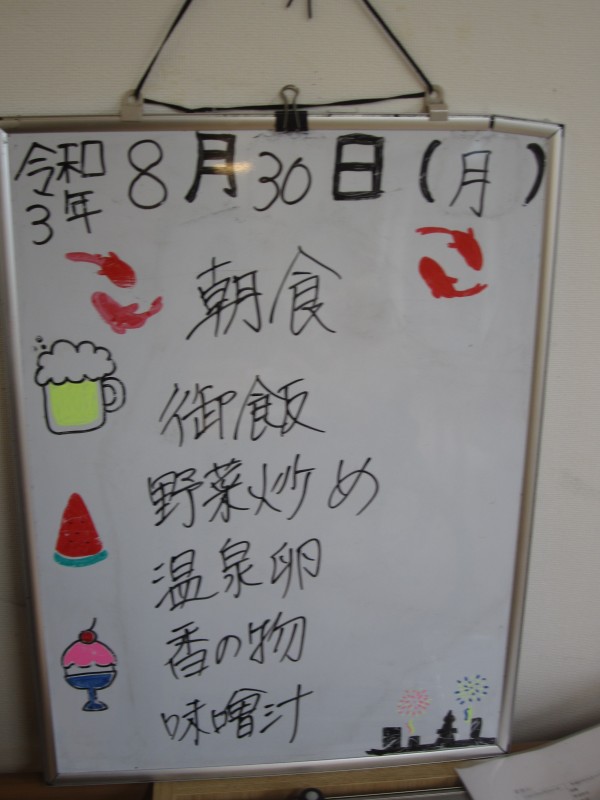 令和3年 8月30日(月)
朝食
御飯
野菜炒め
温泉卵
香の物
味噌汁